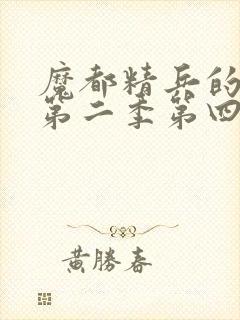 魔都精兵的
第二季第四
黄勝春